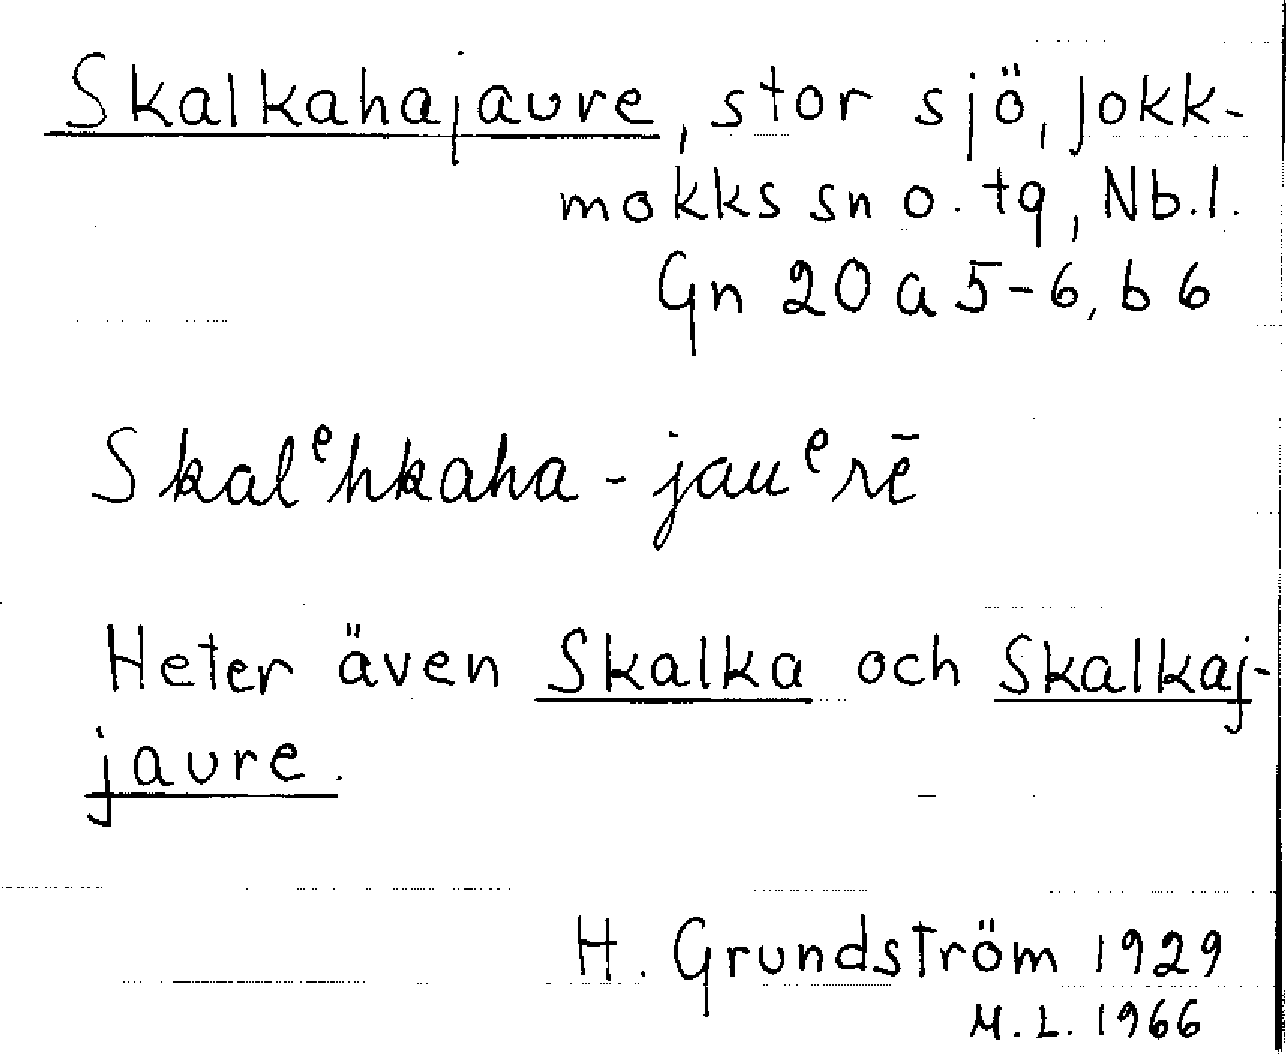 Skalkahajaure, stor sjö, Jokk-
mokks sn o. tg, Nb.l.
Gn 20 a 5-6, b 6
Skalᵉhkaha-jauᵉrē
Heter även Skalka och Skalkaj-
jaure.
H. Grundström 1929
M.L. 1966